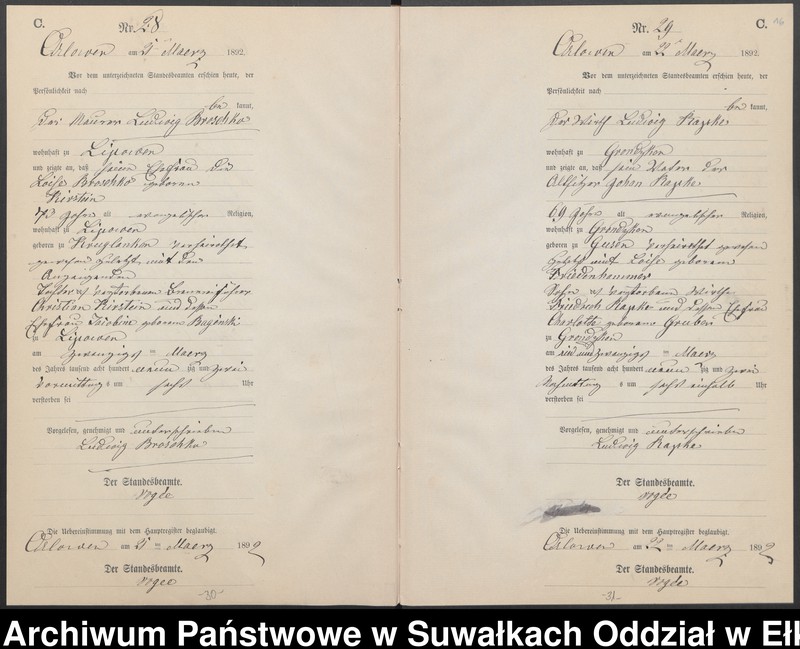 C.
Nr. 28
Carlowen am 21 Maerz 1892.
Vor dem unterzeichneten Standesbeamten erschien heute, der
Persönlichkeit nach
be kannt,
der Maurer Ludwig Broschko
wohnhaft zu Lipowen
und zeigte an, daß seine Ehefrau die
Loise Broschko geborene
Kirstein
73 Jahre alt evangelischer Religion,
wohnhaft zu Lipowen
geboren zu Kruglanken verheirathet
gewesen zuletzt mit dem
Anzeigenden
Tochter des verstorbenen
Christian Kirstein und dessen
Ehefrau Jacobine geborene
zu Lipowen
am zwanzigsten Maerz
des Jahres tausend acht hundert neun zig und zwei
Vormittags um sechs Uhr
verstorben sei
Vorgelesen, genehmigt und unterschrieben
Ludwig Broschko
Der Standesbeamte.
Die Uebereinstimmung mit dem Hauptregister beglaubigt.
Carlowen am 21 ten Maerz 1892
Der Standesbeamte.
-30-
C.
Nr. 29
Carlowen am 22 Maerz 1892.
Vor dem unterzeichneten Standesbeamten erschien heute, der
Persönlichkeit nach
be kannt,
der Wirth Ludwig Kapke
wohnhaft zu Grondzken
und zeigte an, daß sein Vater der
Altsitzer Johan Kapke
69 Jahre alt evangelischer Religion,
wohnhaft zu Grondzken
geboren zu Gusen verheirathet gewesen
zuletzt mit Loise geborene
Friedenhammer
Sohn des verstorbenen Wirths
Friedrich Kapke und dessen Ehefrau
Charlotte geborene Gruber
zu Grondzken
am ein und zwanzigsten Maerz
des Jahres tausend acht hundert neun zig und zwei
Nachmittags um sechs einhalb Uhr
verstorben sei
Vorgelesen, genehmigt und unterschrieben
Ludwig Kapke
Der Standesbeamte.
Die Uebereinstimmung mit dem Hauptregister beglaubigt.
Carlowen am 22 ten Maerz 1892
Der Standesbeamte.
-31-
Archiwum Państwowe w Suwałkach Oddział w Eł